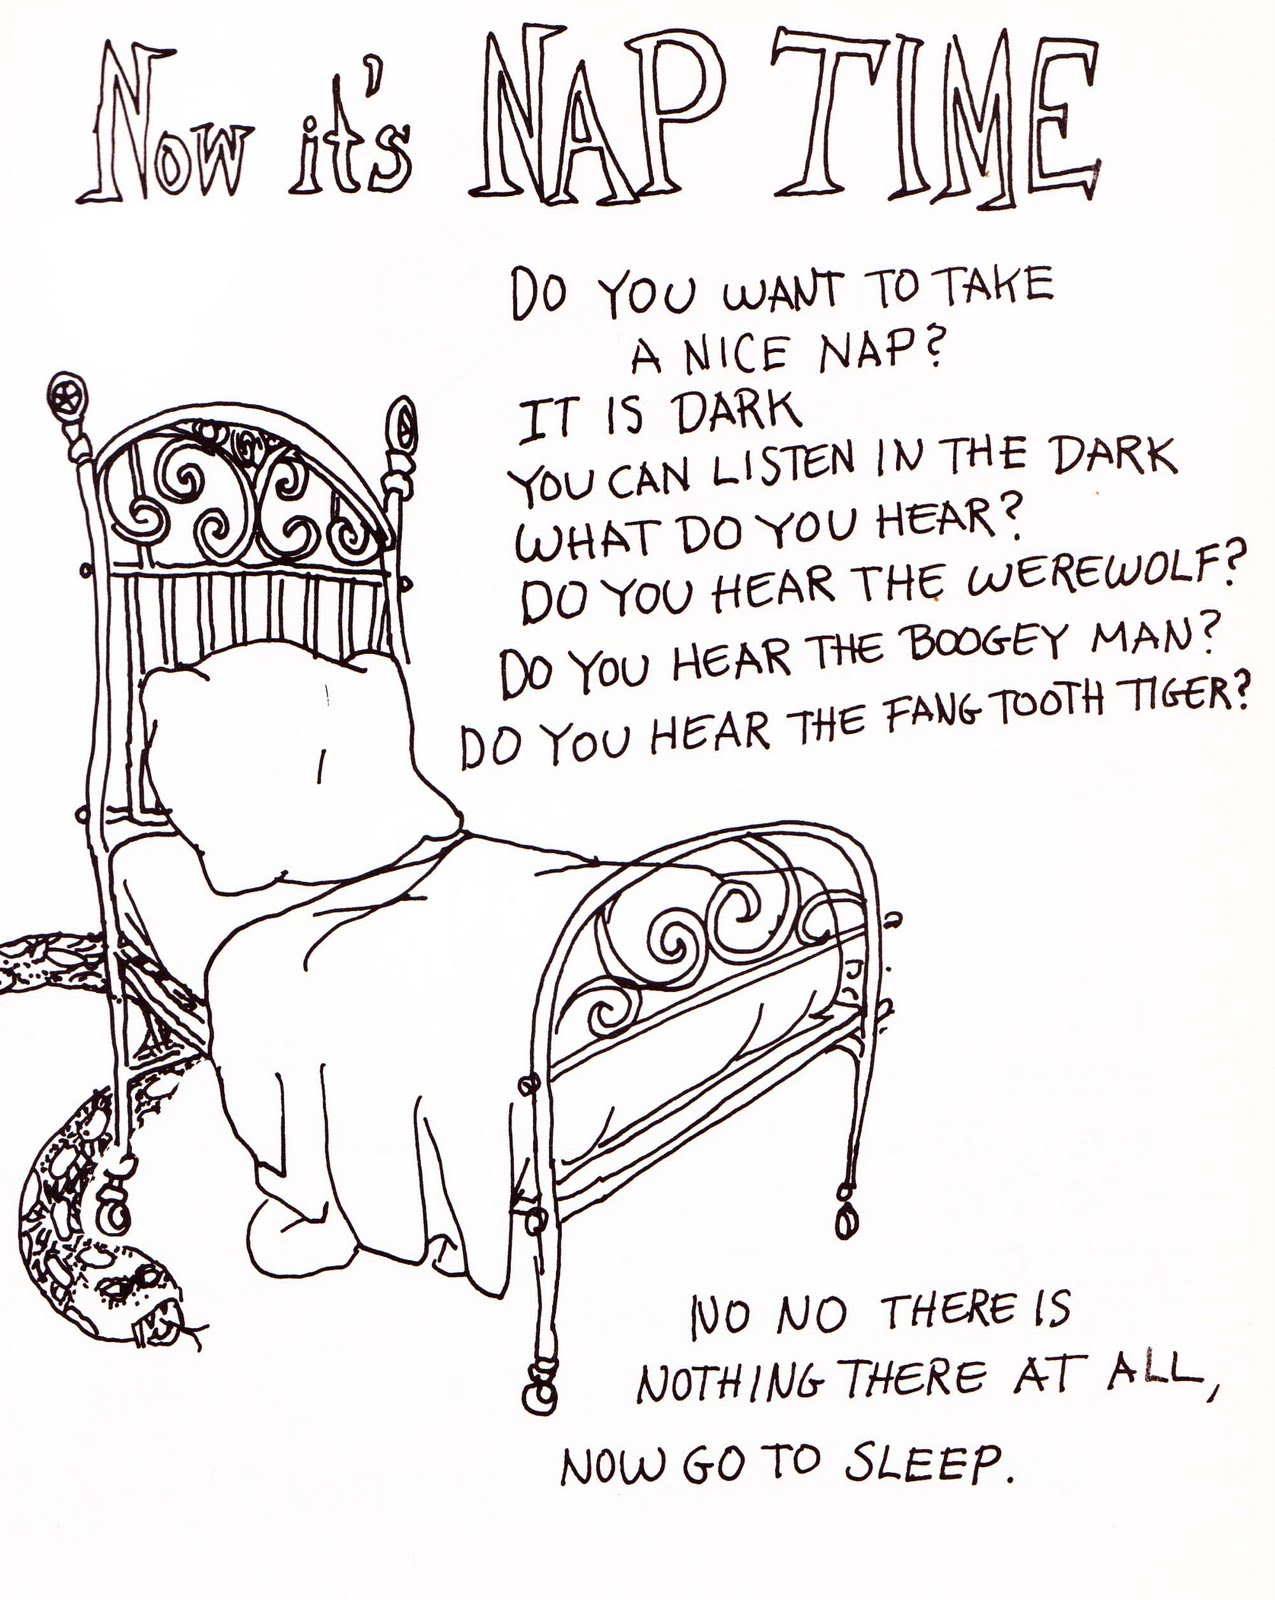 Now it's NAP TIME
DO YOU WANT TO TAKE
A NICE NAP?
IT IS DARK
YOU CAN LISTEN IN THE DARK
WHAT DO YOU HEAR?
DO YOU HEAR THE WEREWOLF?
DO YOU HEAR THE BOOGEY MAN?
DO YOU HEAR THE FANG TOOTH TIGER?
NO NO THERE IS
NOTHING THERE AT ALL,
NOW GO TO SLEEP.